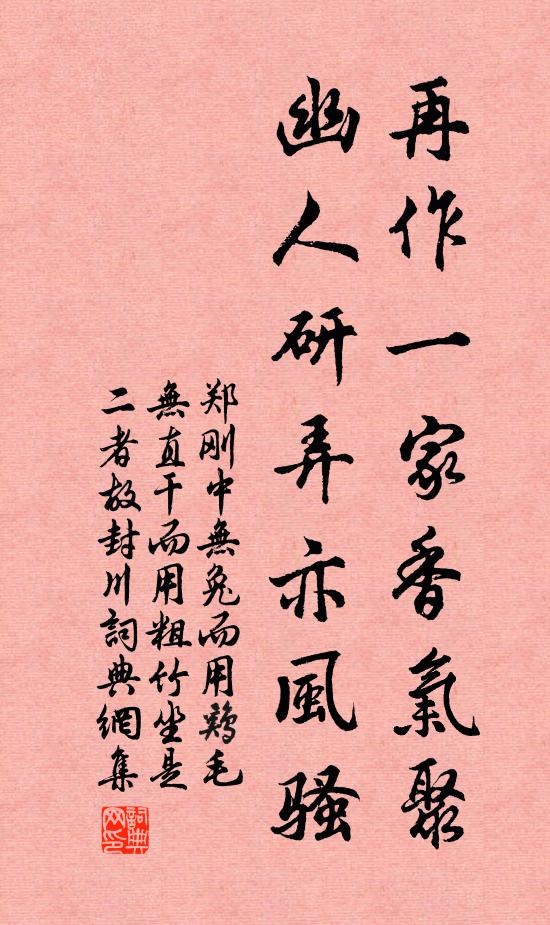 再作一家香氣聚
幽人研弄亦風騷
郑刚中無兔而用鷄毛
無直干而用粗竹坐是
二者故封川詞典網集
詞典网印